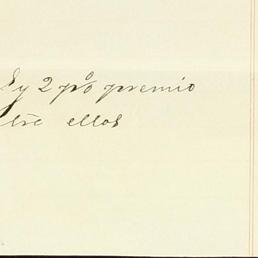 y 2 p% premio
tre ellos